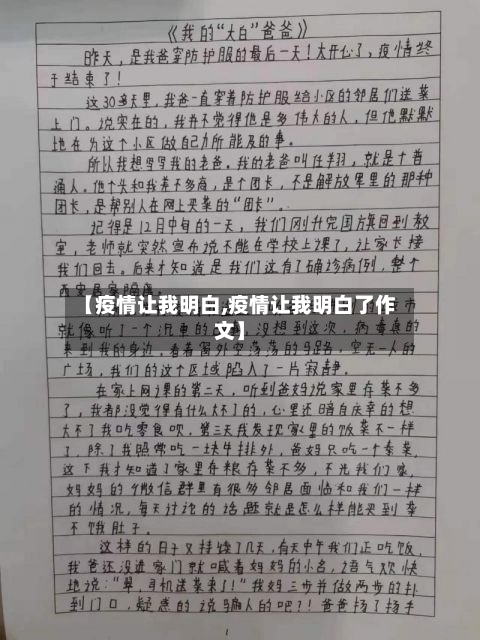 《我的“大白”爸爸》
昨天，是我爸穿防护服的最后一天！太开心了，疫情终
于结束了！
这30多天里，我爸一直穿着防护服给小区的邻居们送菜
上门。说实在的，我并不觉得他是多伟大的人，但他默默
地在为这个小区做自己力所能及的事。
所以我想写写我的老爸。我的老爸叫任翔，就是个普
通人。他个头和我差不多高，是个团长，不是解放军里的那种
团长，是帮别人在网上买菜的“团长”。
记得是12月中旬的一天，我们刚升完国旗回到教
室，老师就突然宣布说不能在学校上课了，让家长接
我们回去。后来才知道是我们这有了确诊病例，整个
西安居家隔离。
【疫情让我明白,疫情让我明白了作
文】
就像听了一个沉重的
没想到这次，病毒真的
来到我的身边。看着窗外空荡荡的马路，空无一人的
广场，我们的这个区域陷入了一片寂静。
在家上网课的第二天，听到爸妈说家里存菜不多
了，我都没觉得有什么大不了的，心里还暗自庆幸的想
大不了我吃零食呗。第三天我发现家里的饭菜不一样
了，除了我照常吃一块牛排外，爸妈只吃一个素菜，
这下我才知道了家里存粮存菜不多，不光我们家，
妈妈的微信群里有很多邻居面临和我们一样
的情况，每天讨论的话题就是怎么样能买到菜
不饿肚子。
这样的日子又持续了几天，有天中午我们正吃饭，
我爸还没进家门就喊着妈妈的小名，语气欢快
地说：“翠，司机送菜来了！”我妈三步并做两步的扑
到门口，疑惑的说骗人的吧？！爸爸扬了扬手
1